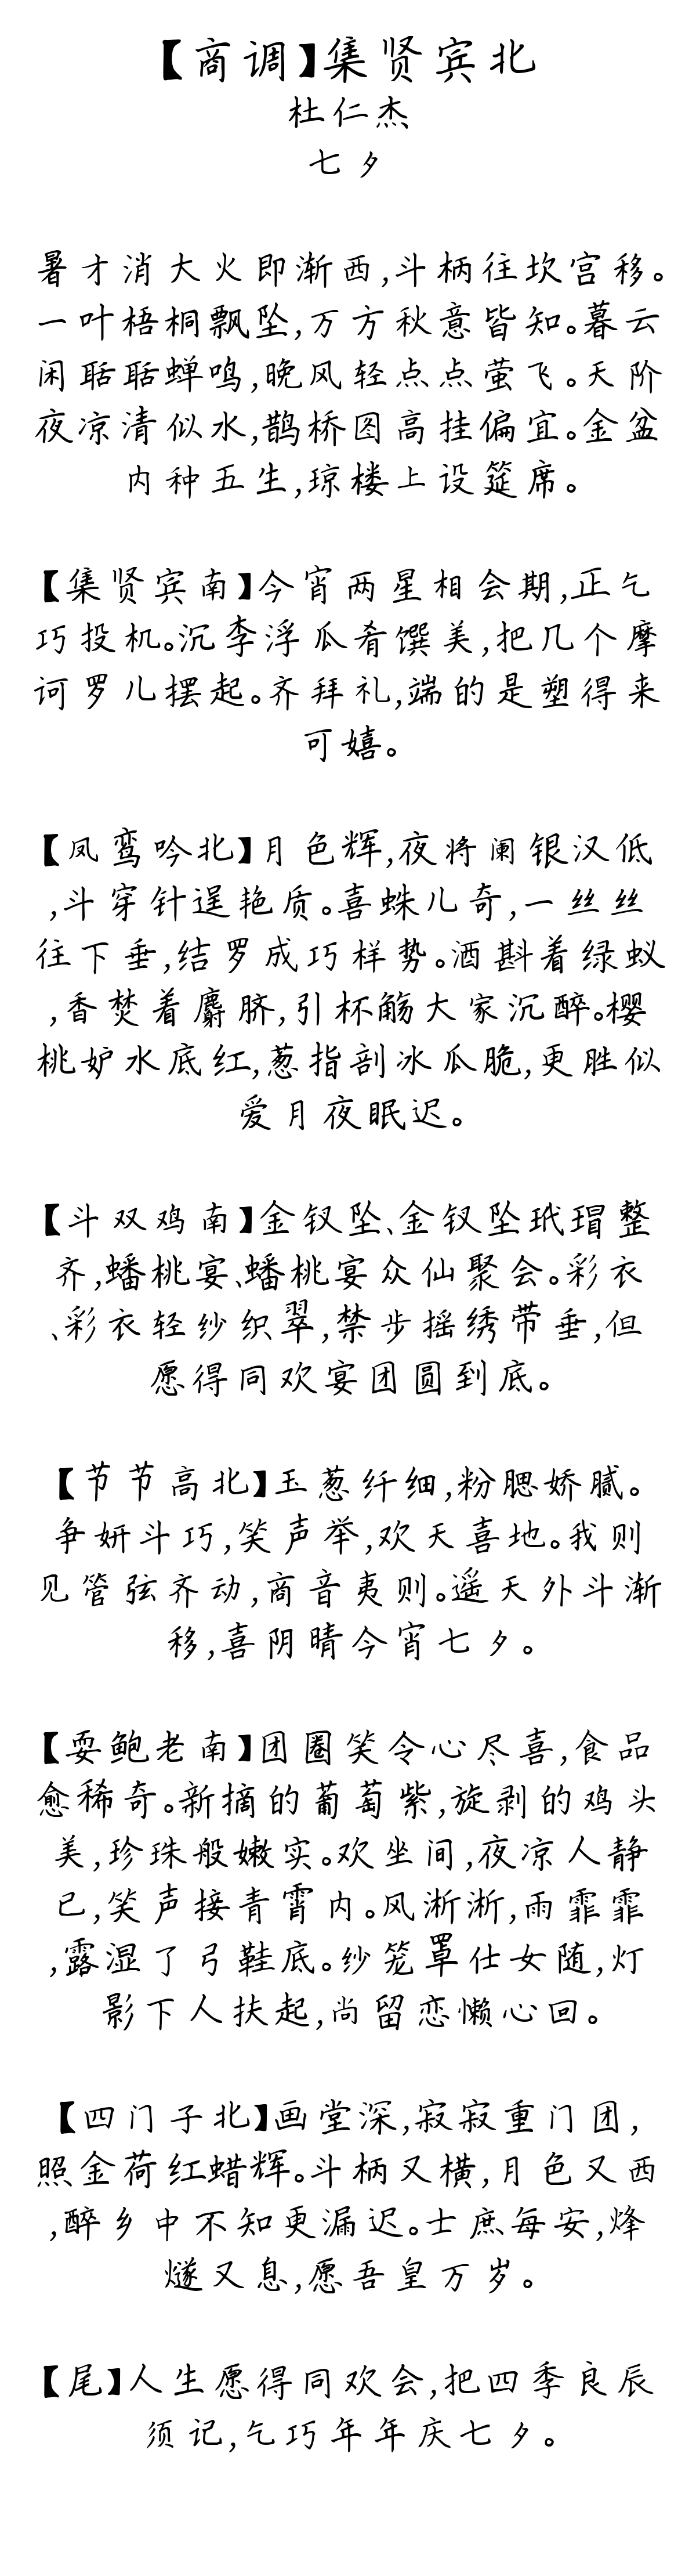 【商调】集贤宾北
杜仁杰
七夕
暑才消大火即渐西,斗柄往坎宫移。
一叶梧桐飘坠,万方秋意皆知。暮云
闲聒聒蝉鸣,晚风轻点点萤飞。天阶
夜凉清似水,鹊桥图高挂偏宜。金盆
内种五生,琼楼上设筵席。
【集贤宾南】今宵两星相会期,正乞
巧投机。沉李浮瓜肴馔美,把几个摩
诃罗儿摆起。齐拜礼,端的是塑得来
可嬉。
【凤鸾吟北】月色辉,夜将阑银汉低
,斗穿针逞艳质。喜蛛儿奇,一丝丝
往下垂,结罗成巧样势。酒斟着绿蚁
,香焚着麝脐,引杯觞大家沉醉。樱
桃妒水底红,葱指剖冰瓜脆,更胜似
爱月夜眠迟。
【斗双鸡南】金钗坠、金钗坠玳瑁整
齐,蟠桃宴、蟠桃宴众仙聚会。彩衣
、彩衣轻纱织翠,禁步摇绣带垂,但
愿得同欢宴团圆到底。
【节节高北】玉葱纤细,粉腮娇腻。
争妍斗巧,笑声举,欢天喜地。我则
见管弦齐动,商音夷则。遥天外斗渐
移,喜阴晴今宵七夕。
【耍鲍老南】团圈笑令心尽喜,食品
愈稀奇。新摘的葡萄紫,旋剥的鸡头
美,珍珠般嫩实。欢坐间,夜凉人静
已,笑声接青霄内。风淅淅,雨霏霏
,露湿了弓鞋底。纱笼罩仕女随,灯
影下人扶起,尚留恋懒心回。
【四门子北】画堂深,寂寂重门团,
照金荷红蜡辉。斗柄又横,月色又西
,醉乡中不知更漏迟。士庶每安,烽
燧又息,愿吾皇万岁。
【尾】人生愿得同欢会,把四季良辰
须记,乞巧年年庆七夕。